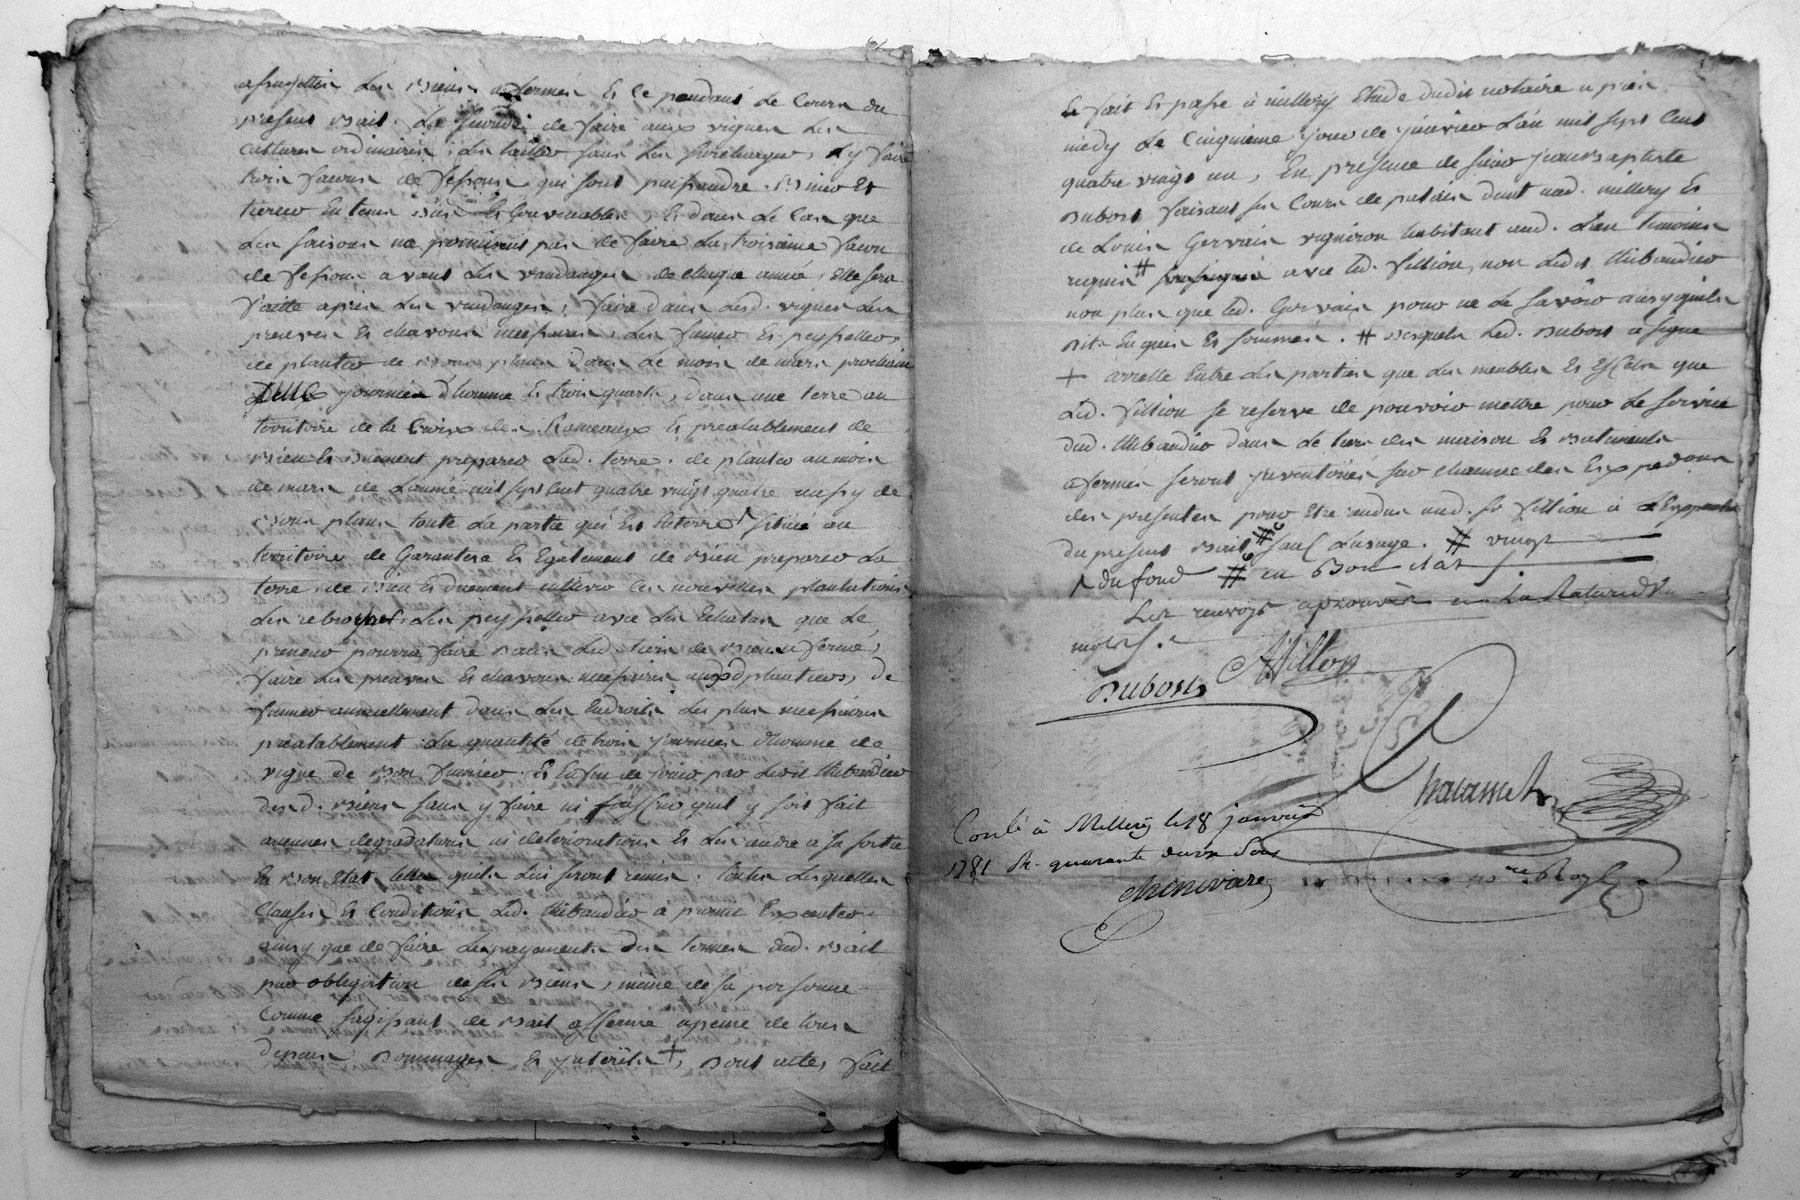 assujettir les biens afermés Et ce pendant le Cours du
present Bail. Le Preneur de faire aux vignes les
cultures ordinaires ; les tailler sans les surcharger, d'y faire
trois facons de fessons qui sont puisandre, Biner Et
tiercer En tems dus Et Convenables Et dans le Cas que
les saisons ne permissent pas de faire la troisieme facon
de fessons avant les vandanges de chaque année, Elle sera
faitte après les vandanges, faire dans lesd. vignes les
preuves Et chavons necessaires, les fumer Et peysseller
de planter de Bons plans dans le mois de mars prochain
journées d'homme Et trois quarts, dans une terre au
territoire de la Croix des Rameaux Et prealablement de
Bien Et duement preparer lad. terre, de planter au mois
de mars de L'année mil sept Cent quatre vingt quatre aussy de
Bons plans toute la partie qui Est Enterre située au
territoire de Garantese Et Egalement de Bien preparer la
terre, de Bien Et duement cultiver les nouvelles plantations
les rebrocher, les peysseller avec les Echalas que le
preneur pourra faire dans lesd. biens de Bien afermé,
faire les preuves Et chavons necessaires auxd plantiers, de
fumer annuellement dans les Endroits les plus necessaires
prealablement la quantité de trois journées d'homme de
vigne de Bon fumier. Et Enfin de jouir par Led. Thibaudier
desd. Biens sans y faire ni souffrir quil y soit fait
aucunes degradations ni deteriorations Et les rendre a sa sortie
En Bon Etat telles quils lui seront remis. Toutes lesquelles
Clauses Et Conditions Led. Thibaudier à promis Executer
ainsy que de faire Les payements des termes dud. Bail
par obligation de ses Biens, même de sa personne
Comme s'agissant de Bail afferme apeine de tous
depens Dommages Et jnterêts +, Dont acte, fait
Et passé à millery Etude dudit notaire a près
medy Le Cinquieme jour de janvier L'an mil sept Cent
quatre vingt un, En presence de sieur jean Baptiste
Dubost faisant ses Cours de pratique demt aud. millery Et
de Louis Gervais vigneron habitant aud. Lieu temoins
requis # soussignés avec led. fillion, non Ledit Thibaudier
non plus que led. Gervais pour ne le savoir ainsy quils ont
dit Enquis Et sommés. # desquels led. Dubost à signé
+ arretté Entre les parties que les meubles Et Effets que
Led. fillion se reserve de pouvoir mettre pour le service
dud. thibaudier dans le tiers des maison Et Batiments
afermés seront jnventoriés sur chacune des Expeditions
des presentes pour Etre rendus aud. Sr fillion à L'Expiration
du present Bail # sauf Lusage. # vingt
^ du fond # en Bon etat
Les renvoys aprouvés Et La Rature de
mots.
Dubost Fillion
Chalamet
no.re Royl
Conlé à Millery le 18 janvier
1781 R. quarante deux sous
Chenevière